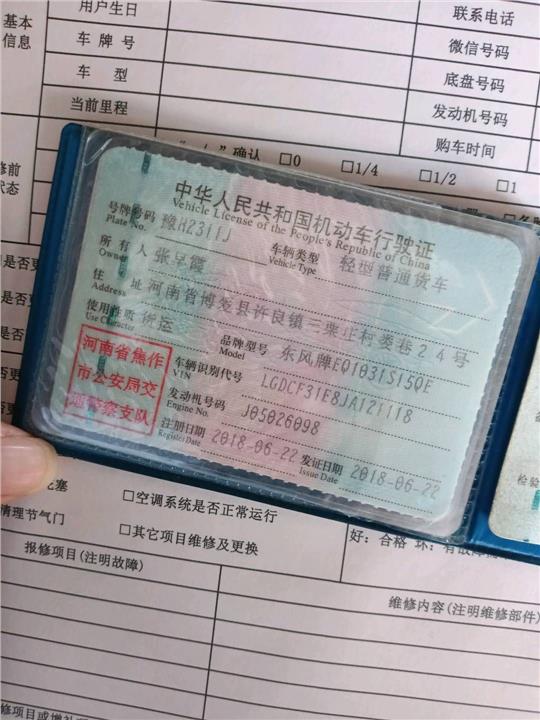 用户生日
联系电话
基本
信息
车 牌 号
微信号码
车 型
底盘号码
当前里程
发动机号码
购车时间
确认 □0 □1/4 □1/2 □1
修前
状态
中华人民共和国机动车行驶证
Vehicle License of the People's Republic of China
号牌号码 豫H2311J 车辆类型 轻型普通货车
Plate No. Vehicle Type
所 有 人 张呈霞
Owner
住 址 河南省博爱县许良镇三栗庄村类巷24号
Address
使用性质 货运 品牌型号 东风牌EQ1031S15QE
Use Character Model
河南省焦作
市公安局交
通警察支队
车辆识别代号 LGDCF31E8JA121118
VIN
发动机号码 J05026098
Engine No.
注册日期 2018-06-22 发证日期 2018-06-22
Register Date Issue Date
检验
是否更
是否更
花塞 □空调系统是否正常运行
清理节气门 □其它项目维修及更换
好：合格 坏：有故障
报修项目(注明故障)
维修内容(注明维修部件)